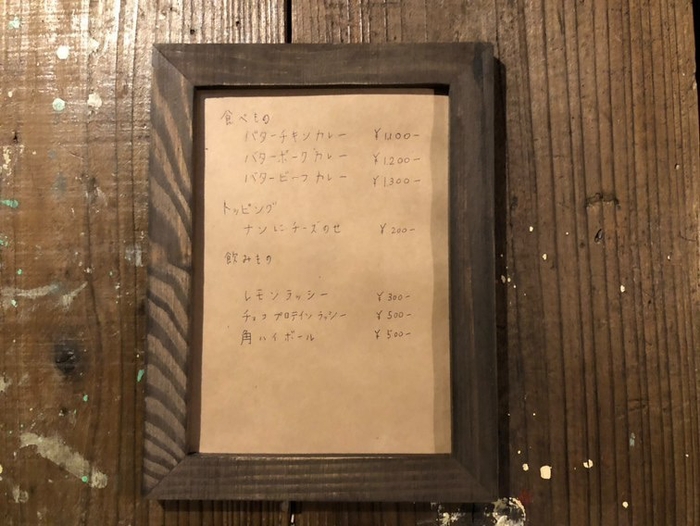 食べもの
バターチキンカレー ¥1,100-
バターポークカレー ¥1,200-
バタービーフカレー ¥1,300-
トッピング
ナンにチーズのせ ¥200-
飲みもの
レモンラッシー ¥300-
チョコプロテインラッシー ¥500-
角ハイボール ¥500-